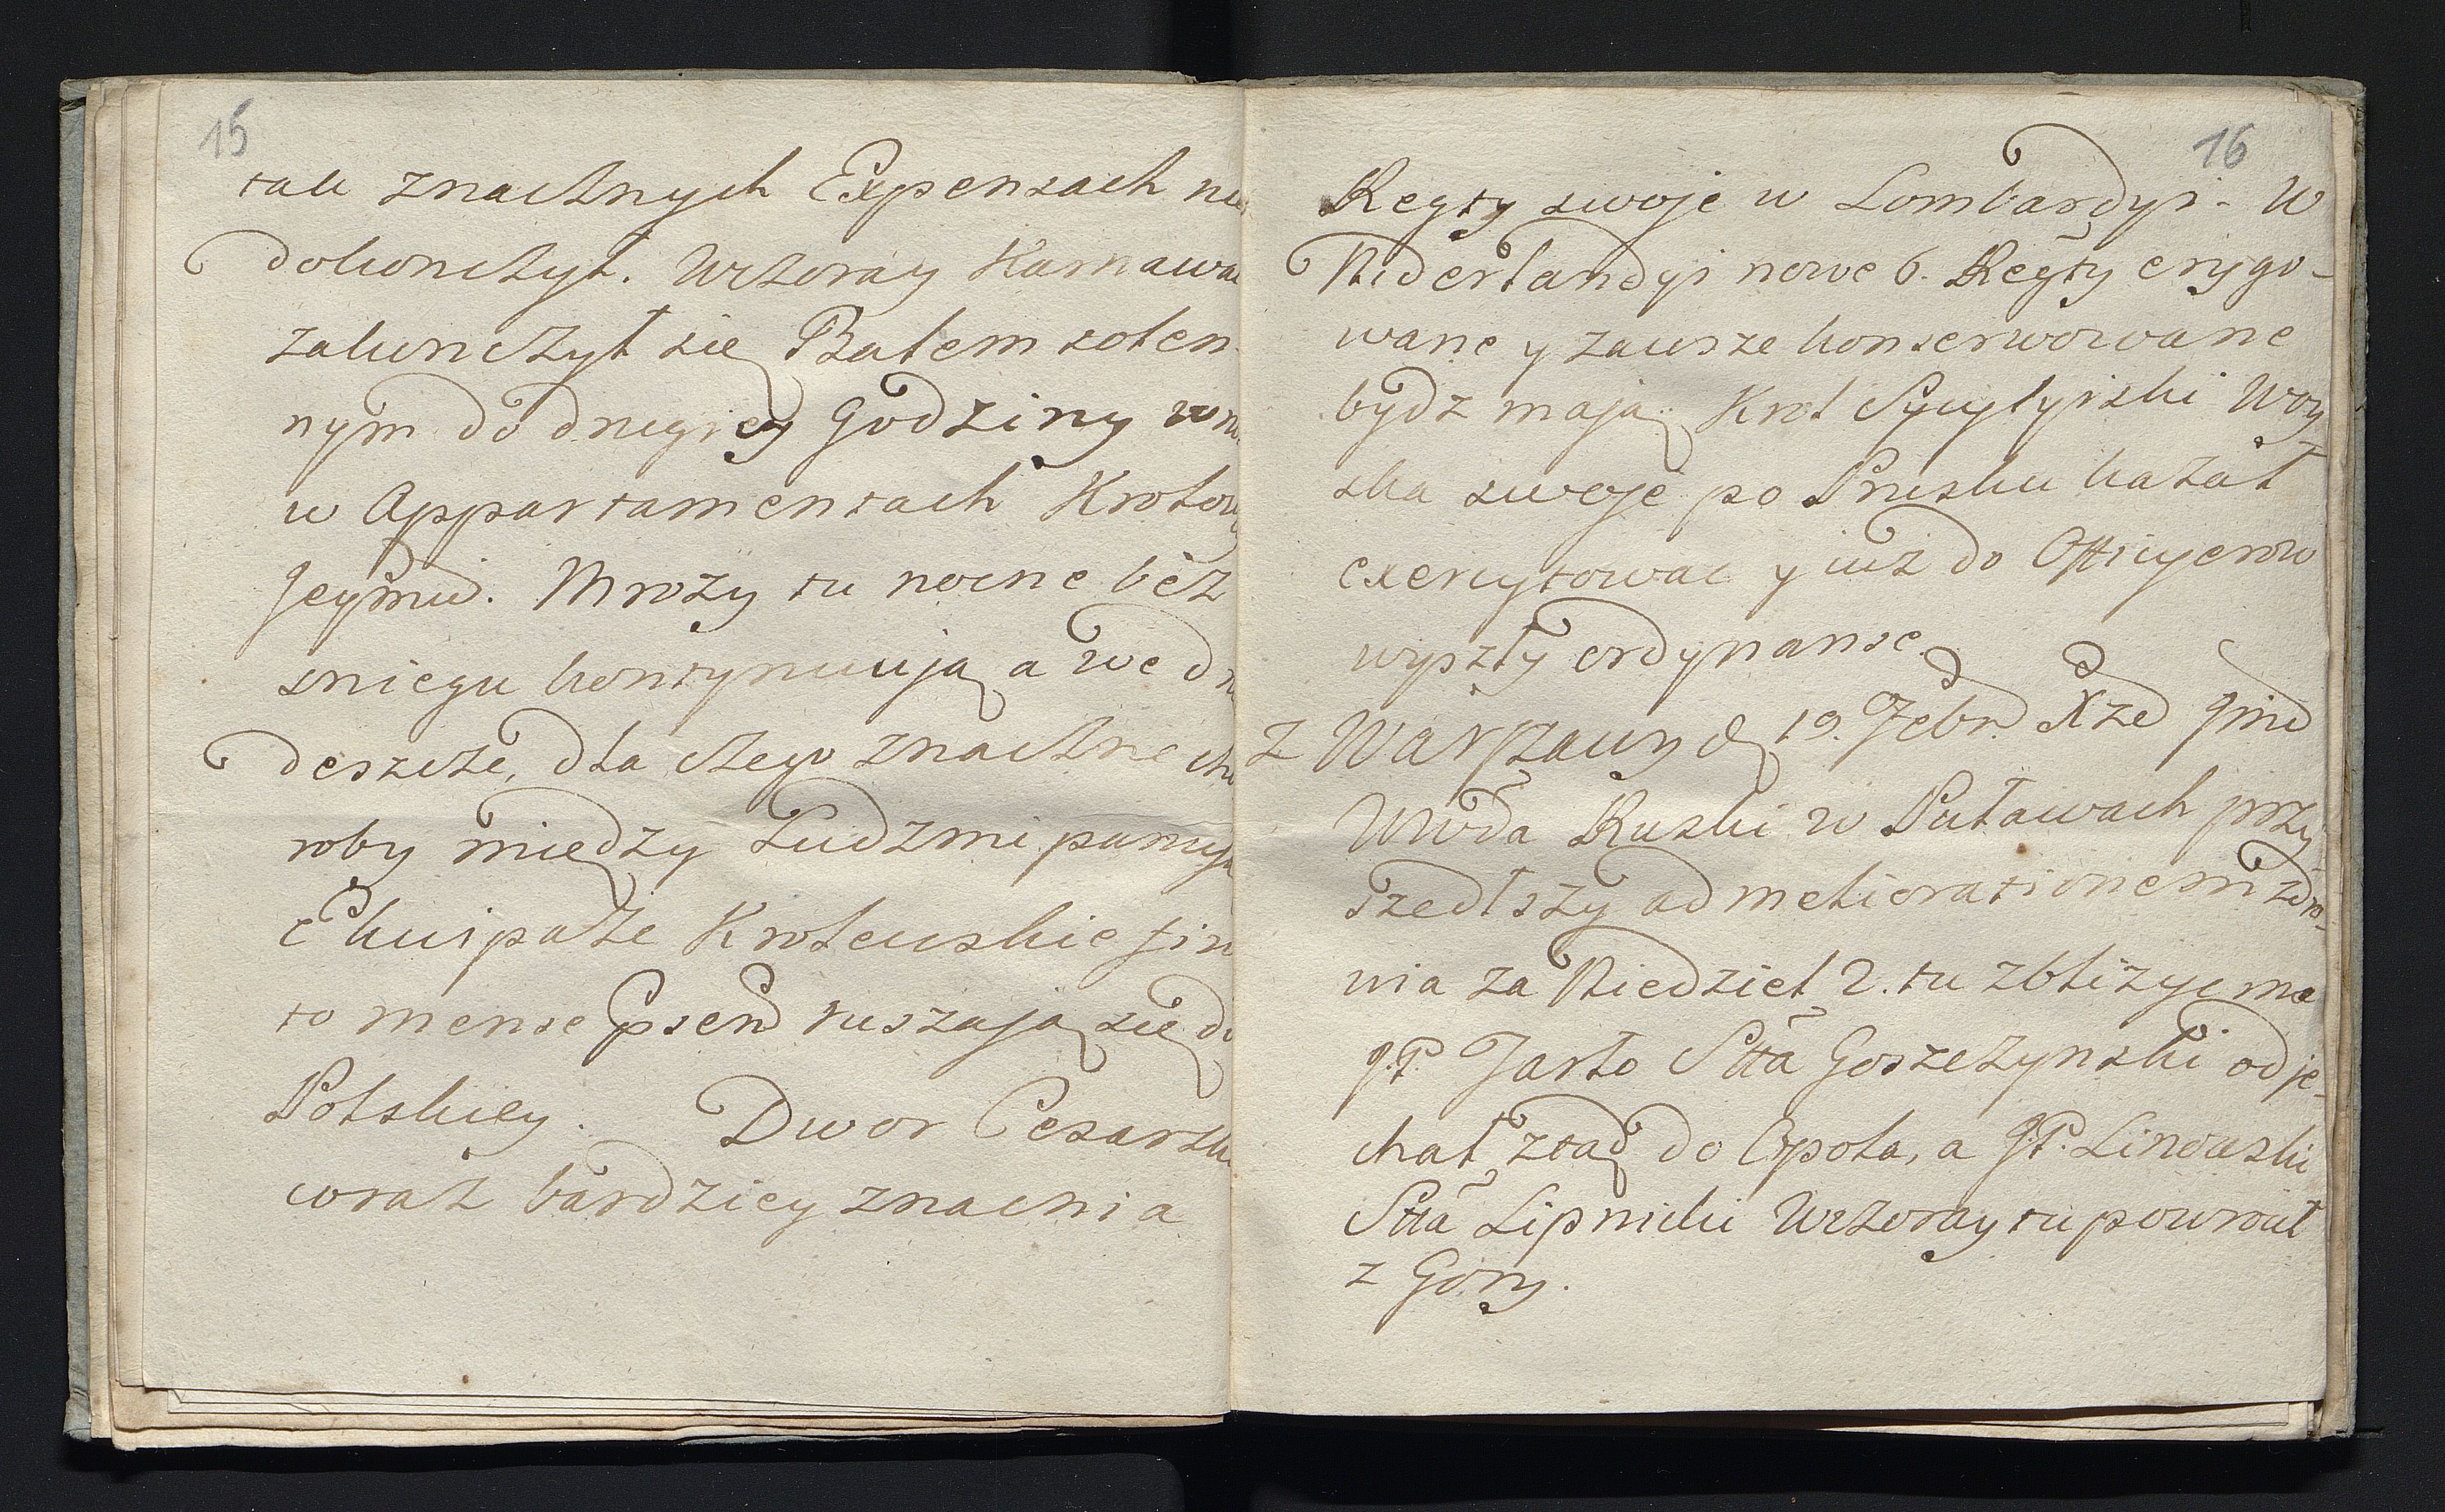 15
tak znacznych Expensach nie
dokonczył. Wczoray Karnawał
zakonczył się Balem solen-
nym do drugiey Godziny w no
w Appartamentach Krolowy
Jeymci. Mrozy tu nocne bez
sniegu kontynuują a we dn
deszcze, dla czego znaczne cho
roby między Ludzmi panują
Ekwipaże Krolewskie fini
to mense Psend ruszają się do
Polskiey. Dwor Cesarski
coraz bardziey zmacnia
16
Regty swoje w Lombardyi. W
Niderlandyi nowe 6. Regty erygo-
wane y zawsze konserwowane
bydz mają. Krol Sycylyiski Woy
ska swoje po Prusku kazał
exercytowac y iuż do Officyerow
wyszły ordynanse.
Z Warszawy d 19. Febr. Xże Jmć
Wwda Ruski w Puławach przy
szedłszy ad meliorationem zdro-
wia za Niedziel 2. tu zblizyc ma
J.P. Jarło Stta Goszczynski odje-
chał ztąd do Opola, a J.P. Linowski
Stta Lipnicki Wczoray tu powrócił
z Gory.